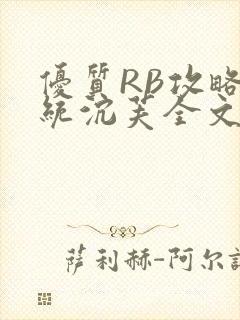 優質RB攻略
統沉芙全文
萨利赫-阿尔